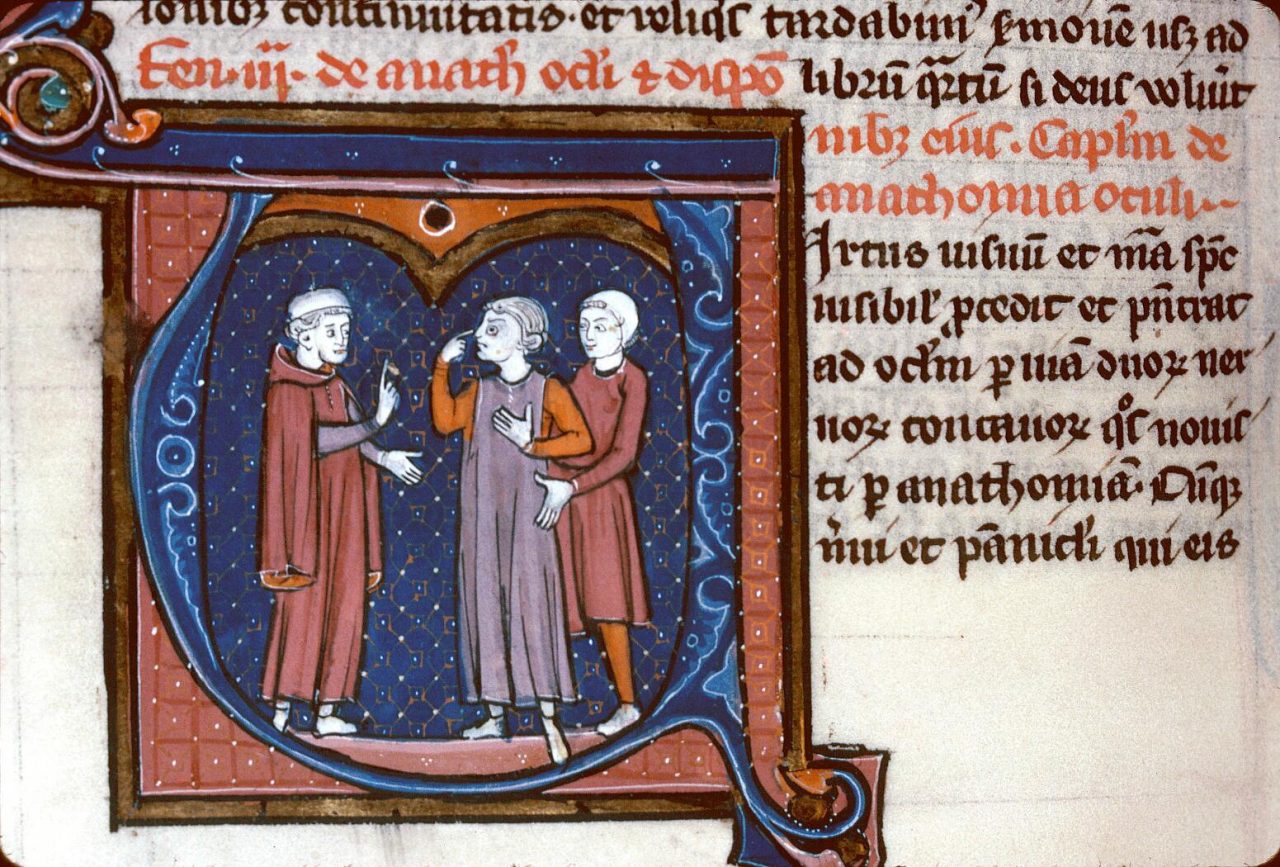 ionibꝫ continuitatis · et reliqͥs tardabimꝰ ẜmonē usqꝫ ad
Fen · iij · de anath̅ ocl̅i ⁊ dispo̅
librū qͣrtū si deus voluūt
nibꝫ eius . Capl̅m de
anathomia oculi
Irtus uisuū et mā spc̅
uisibil' ꝓcedit et pn̅etrat
ad ocl̅m ꝑ uiā duoꝝ ner
uoꝝ concauoꝝ qͦs nouis
ti ꝑ anathomiā . Cūqꝫ
n̅ui et pānicl̅i qui eis